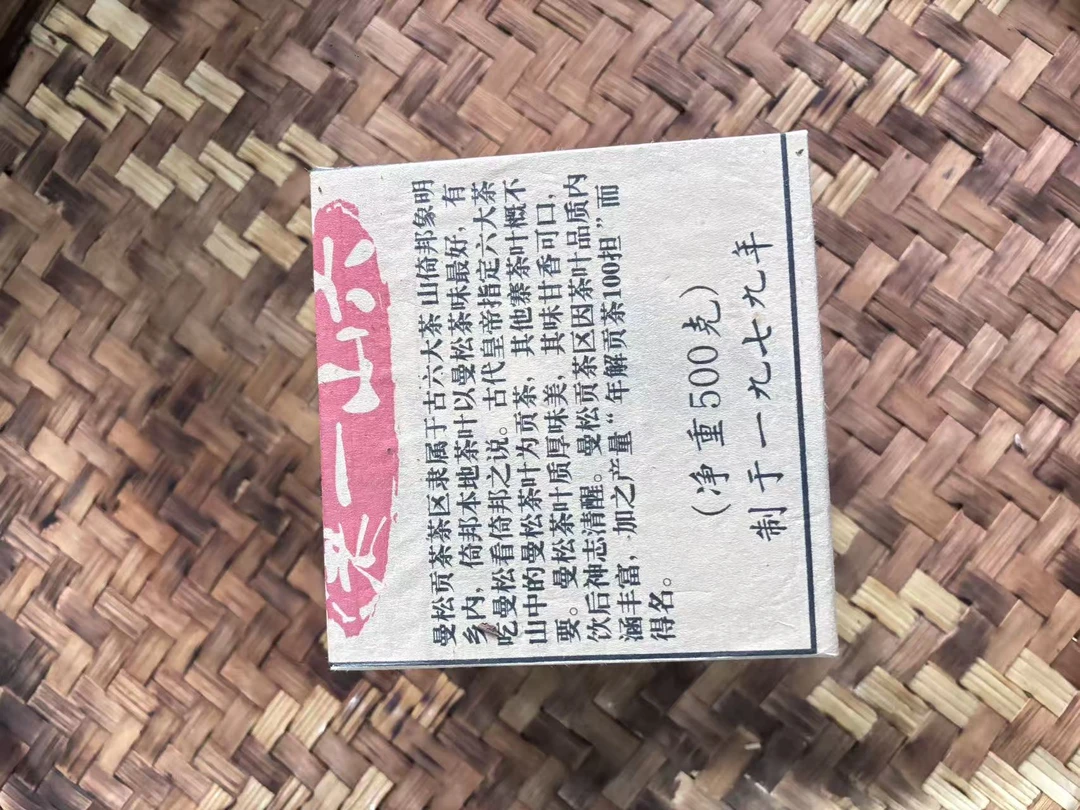 六山一茶
曼松贡茶茶区隶属于古六大茶 山倚邦象明
乡内，倚邦本地茶叶以曼松茶味最好，有
吃曼松看倚邦之说。古代皇帝指定六大茶
山中的曼松茶叶为贡茶，其他寨茶叶概不
要。曼松茶叶质厚味美，其味甘香可口，
饮后神志清醒。曼松贡茶区因茶叶品质内
涵丰富，加之产量“年解贡茶100担”而
得名。
(净重500克)
制于一九七九年